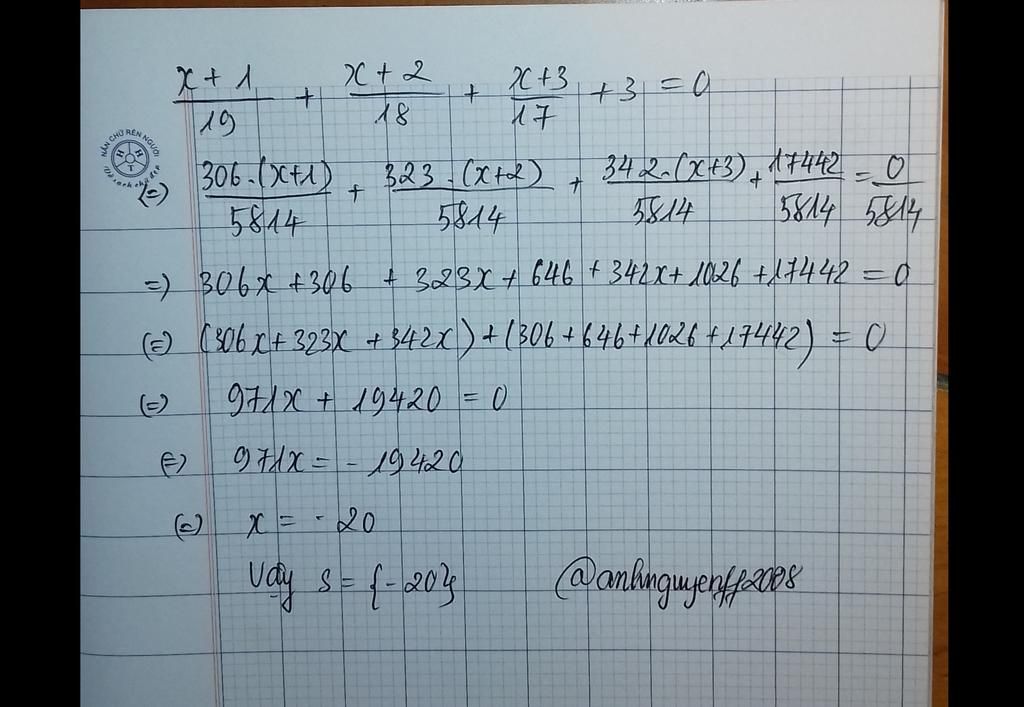 x + 1 / 19 + x + 2 / 18 + x+3 / 17 + 3 = 0
NẮN CHỮ RÈN NGƯỜI
H T H
(=) 306.(x+1) / 5814 + 323.(x+2) / 5814 + 342.(x+3) / 5814 + 17442 / 5814 = 0 / 5814
=) 306x +306 + 323x + 646 + 342x + 1026 +17442 = 0
(=) (306x + 323x + 342x) + (306 + 646 + 1026 + 17442) = 0
(=) 971x + 19420 = 0
(=) 971x = - 19420
(=) x = - 20
Vậy S = {-20}
@anhnguyenff2008